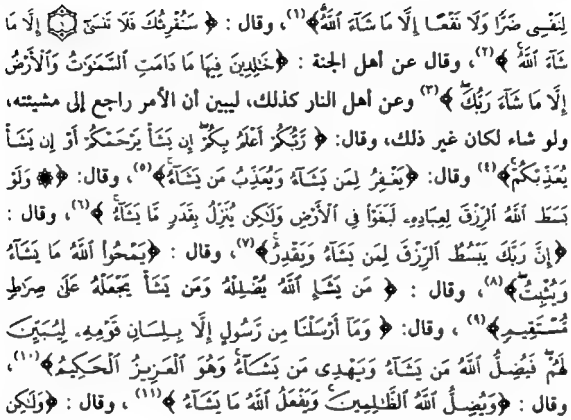 لِنَفْسِى ضَرًّا وَلَا نَفْعًا إِلَّا مَا شَآءَ ٱللَّهُ﴾(١)، وقال : ﴿ سَنُقْرِئُكَ فَلَا تَنسَىٰٓ ۝٦ إِلَّا مَا
شَآءَ ٱللَّهُ ﴾(٢)، وقال عن أهل الجنة : ﴿خَـٰلِدِينَ فِيهَا مَا دَامَتِ ٱلسَّمَـٰوَٰتُ وَٱلْأَرْضُ
إِلَّا مَا شَآءَ رَبُّكَ ﴾(٣) وعن أهل النار كذلك، ليبين أن الأمر راجع إلى مشيئته،
ولو شاء لكان غير ذلك، وقال: ﴿ رَّبُّكُمْ أَعْلَمُ بِكُمْ ۖ إِن يَشَأْ يَرْحَمْكُمْ أَوْ إِن يَشَأْ
يُعَذِّبْكُمْ ۚ﴾(٤) وقال: ﴿يَغْفِرُ لِمَن يَشَآءُ وَيُعَذِّبُ مَن يَشَآءُ ۚ﴾(٥)، وقال: ﴿۞ وَلَوْ
بَسَطَ ٱللَّهُ ٱلرِّزْقَ لِعِبَادِهِۦ لَبَغَوْا۟ فِى ٱلْأَرْضِ وَلَـٰكِن يُنَزِّلُ بِقَدَرٍ مَّا يَشَآءُ ۚ ﴾(٦)، وقال :
﴿إِنَّ رَبَّكَ يَبْسُطُ ٱلرِّزْقَ لِمَن يَشَآءُ وَيَقْدِرُ ۚ﴾(٧)، وقال : ﴿يَمْحُوا۟ ٱللَّهُ مَا يَشَآءُ
وَيُثْبِتُ ۖ﴾(٨)، وقال : ﴿ مَن يَشَإِ ٱللَّهُ يُضْلِلْهُ وَمَن يَشَأْ يَجْعَلْهُ عَلَىٰ صِرَٰطٍ
مُّسْتَقِيمٍ﴾(٩) ، وقال: ﴿ وَمَآ أَرْسَلْنَا مِن رَّسُولٍ إِلَّا بِلِسَانِ قَوْمِهِۦ لِيُبَيِّنَ
لَهُمْ ۖ فَيُضِلُّ ٱللَّهُ مَن يَشَآءُ وَيَهْدِى مَن يَشَآءُ ۚ وَهُوَ ٱلْعَزِيزُ ٱلْحَكِيمُ﴾(١٠)،
وقال : ﴿وَيُضِلُّ ٱللَّهُ ٱلظَّـٰلِمِينَ ۚ وَيَفْعَلُ ٱللَّهُ مَا يَشَآءُ ﴾(١١) ، وقال : ﴿وَلَـٰكِنَّ